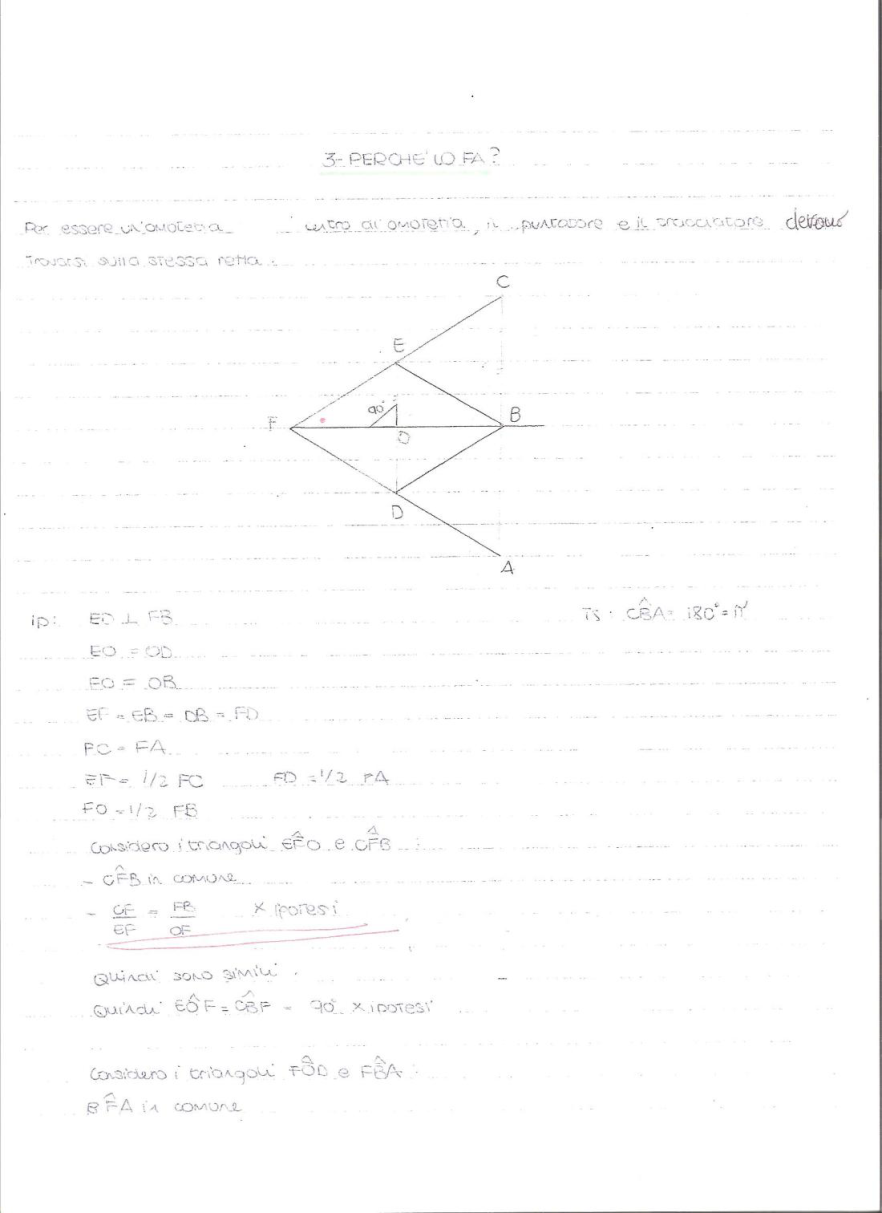 3- PERCHE' LO FA?
Per essere un'omotetia centro di omotetia, il puntatore e il tracciatore devono
trovarsi sulla stessa retta:
C
E
90°
F
B
O
D
A
ip: ED ⊥ FB
Ts: CB̂A = 180° = π
EO = OD
EO = OB
EF = EB = DB = FD
FC = FA
EF = 1/2 FC FD = 1/2 FA
FO = 1/2 FB
Considero i triangoli EF̂O e CF̂B :
- CF̂B in comune
- CF/EF = FB/OF x ipotesi
Quindi sono simili.
Quindi EÔF = CB̂F = 90° x ipotesi
Considero i triangoli FÔD e FB̂A :
BF̂A in comune